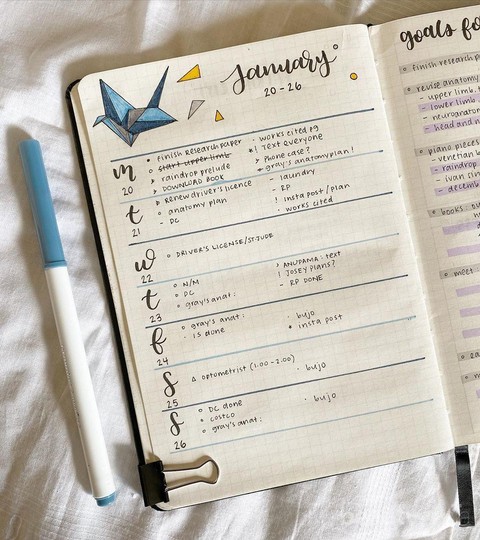 January
20-26
m
20
finish research paper
start upper limb
raindrop prelude
DOWNLOAD BOOK
works cited pg
! Text everyone
> Phone case?
gray's anatomy plan!
t
21
> Renew driver's licence
anatomy plan
- DC
- laundry
- RP
! insta post/plan
works cited
w
22
DRIVER'S LICENSE/ST.JUDE
t
23
N/M
DC
gray's anat:
> ANUPAMA: text
! JOSEY plans?
- RP DONE
f
24
gray's anat:
is done
bujo
insta post
s
25
optometrist (1:00-2:00)
bujo
s
26
DC done
costco
gray's anat:
bujo
goals fo
finish research p
revise anatomy
- upper limb, t
- lower limb
- neuroanator
- head and n
piano pieces
- venetian b
- raindrop
- ivan sin
- decemb
books
meet